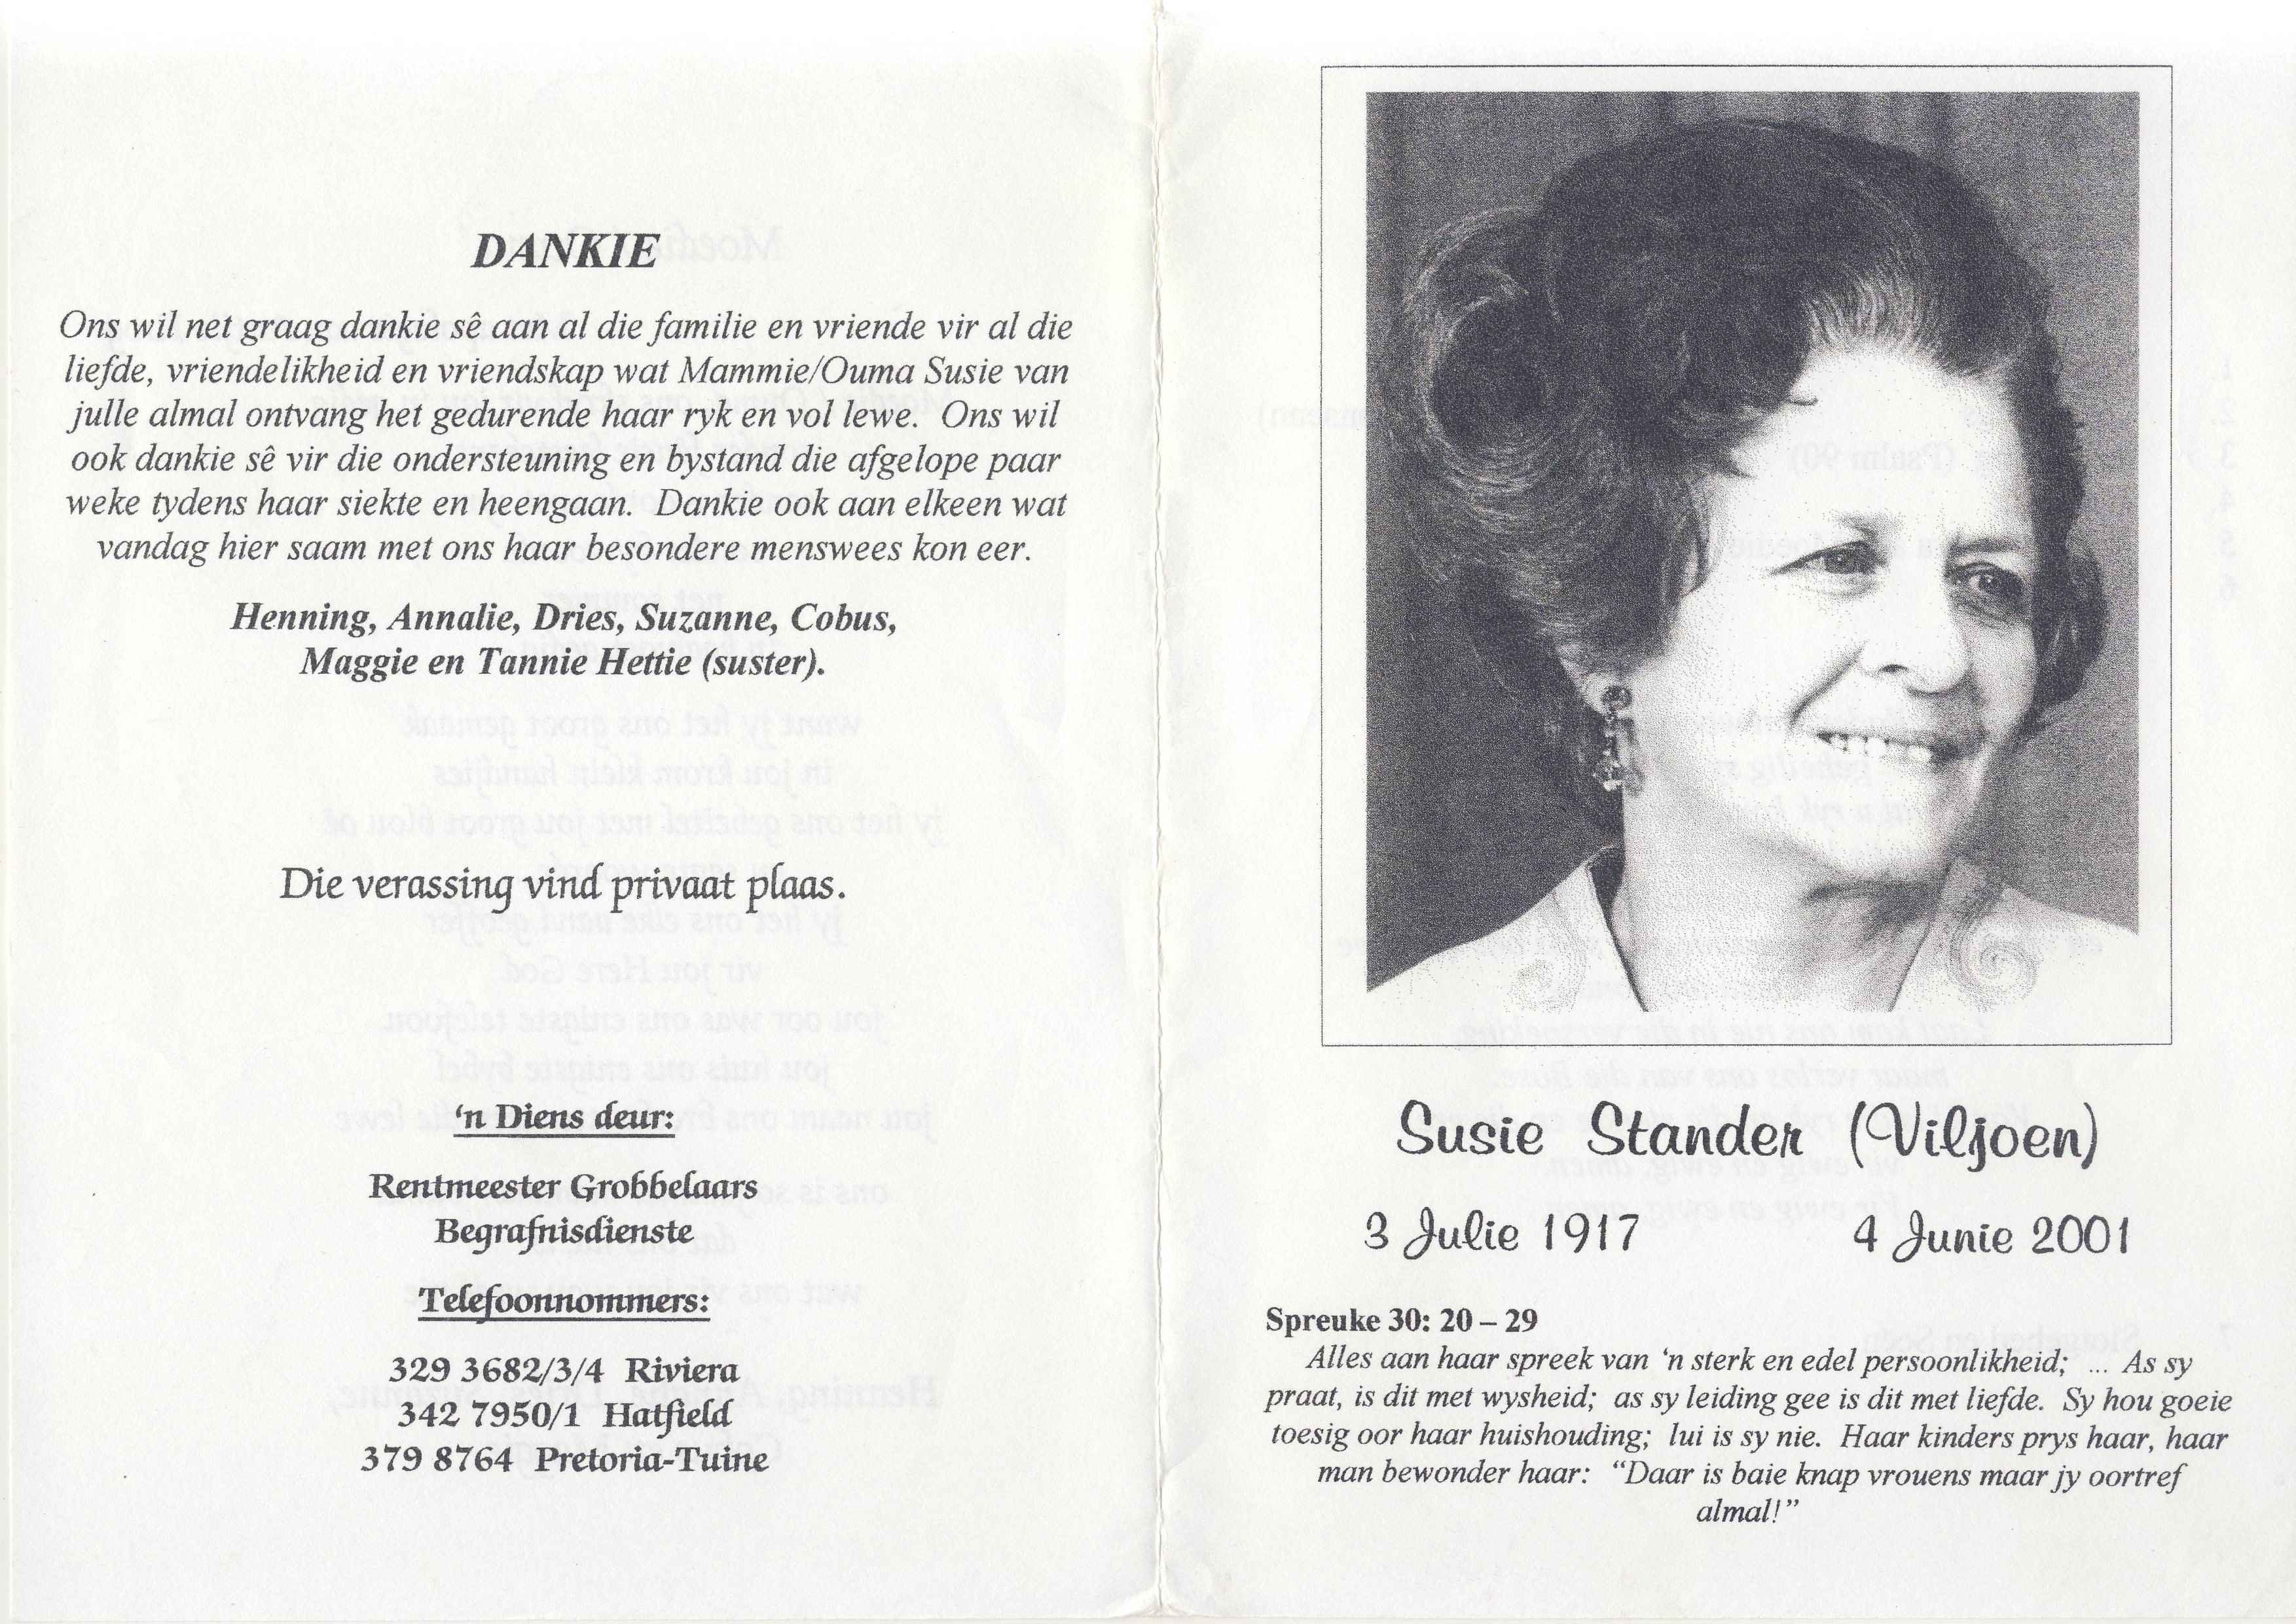 DANKIE
Ons wil net graag dankie sê aan al die familie en vriende vir al die
liefde, vriendelikheid en vriendskap wat Mammie/Ouma Susie van
julle almal ontvang het gedurende haar ryk en vol lewe. Ons wil
ook dankie sê vir die ondersteuning en bystand die afgelope paar
weke tydens haar siekte en heengaan. Dankie ook aan elkeen wat
vandag hier saam met ons haar besondere menswees kon eer.
Henning, Annalie, Dries, Suzanne, Cobus,
Maggie en Tannie Hettie (suster).
Die verassing vind privaat plaas.
‘n Diens deur:
Rentmeester Grobbelaars
Begrafnisdienste
Telefoonnommers:
329 3682/3/4 Riviera
342 7950/1 Hatfield
379 8764 Pretoria-Tuine
Susie Stander (Viljoen)
3 Julie 1917 4 Junie 2001
Spreuke 30: 20 – 29
Alles aan haar spreek van ‘n sterk en edel persoonlikheid; ... As sy
praat, is dit met wysheid; as sy leiding gee is dit met liefde. Sy hou goeie
toesig oor haar huishouding; lui is sy nie. Haar kinders prys haar, haar
man bewonder haar: “Daar is baie knap vrouens maar jy oortref
almal!”